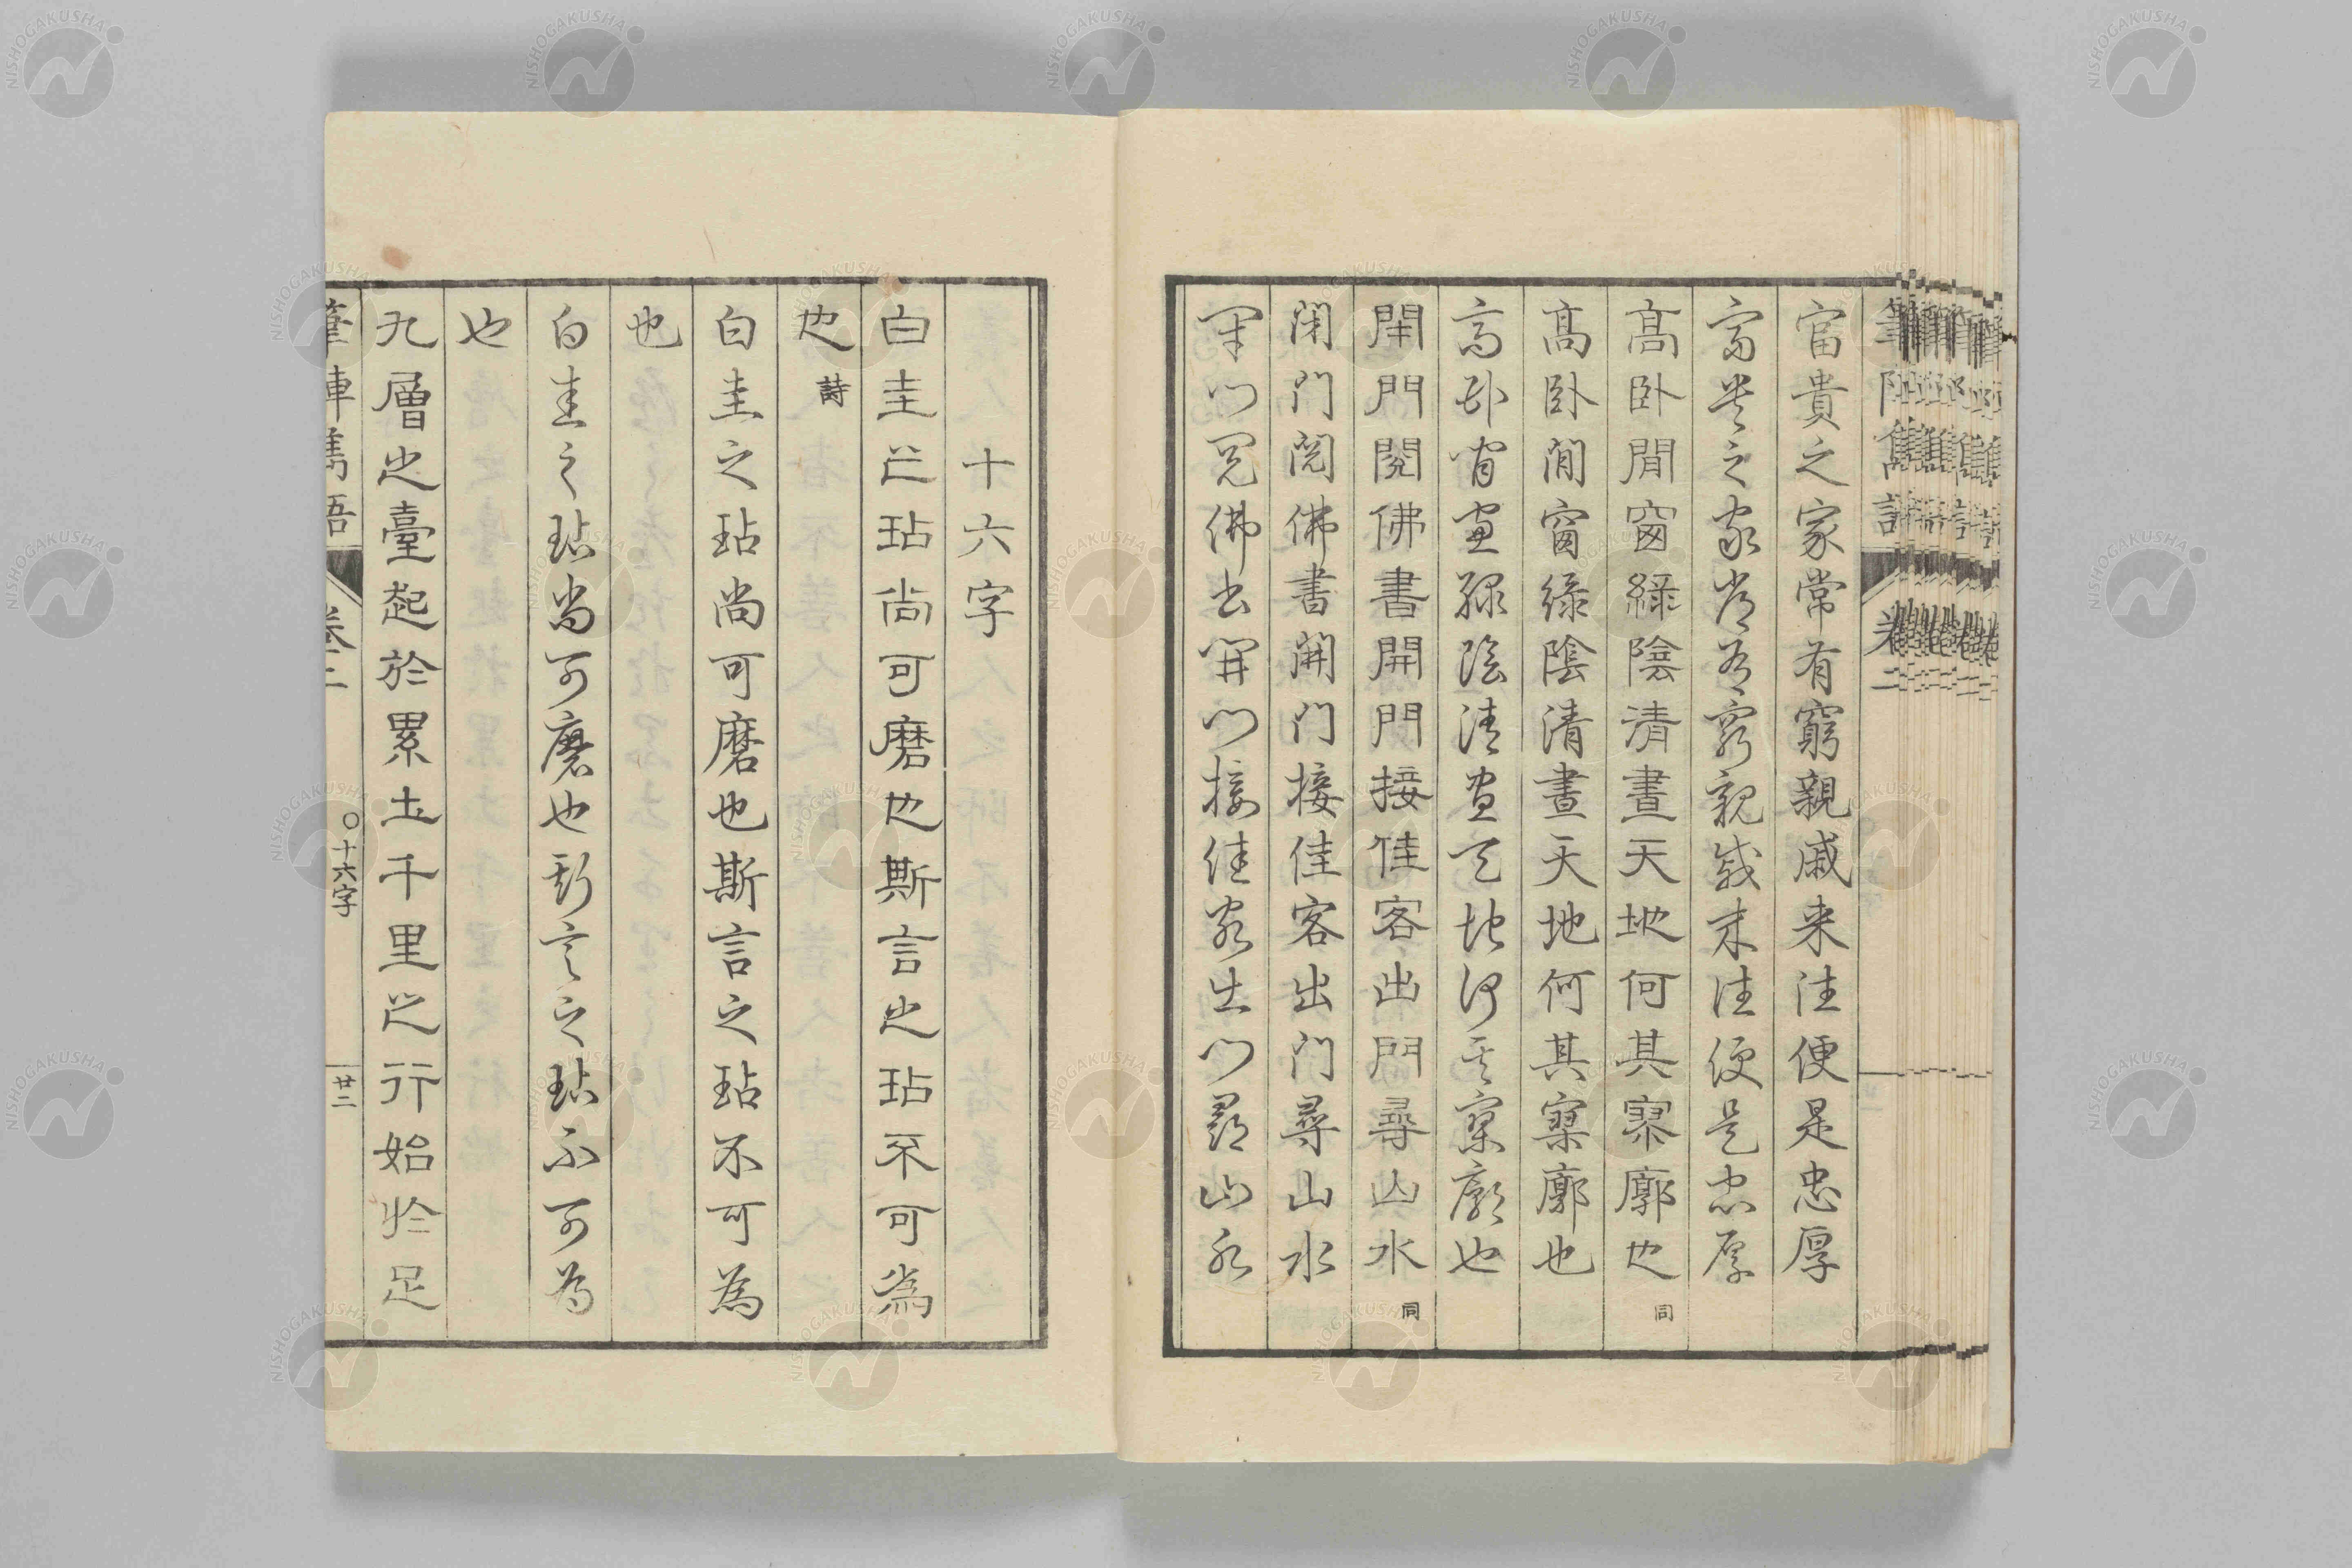 富貴之家常有窮親戚来往便是忠厚
富貴之家常有窮親戚来往便是忠厚
高臥閒窗緑陰清晝天地何其寥廓也 同
高臥閒窗緑陰清晝天地何其寥廓也
高臥閒窗緑陰清晝天地何其寥廓也
閉門閲佛書開門接佳客出門尋山水 同
閉門閲佛書開門接佳客出門尋山水
閉門閲佛書開門接佳客出門尋山水
十六字
白圭之玷尚可磨也斯言之玷不可為
也 詩
白圭之玷尚可磨也斯言之玷不可為
也
白圭之玷尚可磨也斯言之玷不可為
也
九層之臺起於累土千里之行始於足
筆陣雋語 卷二 〇十六字 廿二
NISHOGAKUSHA